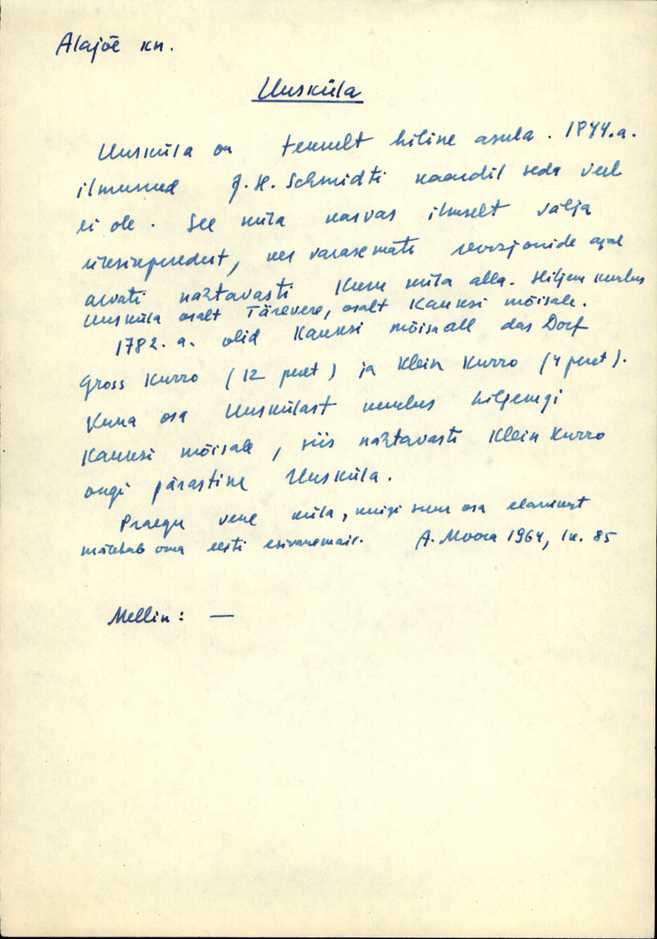 Alajõe kn.
Uusküla
Uusküla on teiselt hiline asula. 1844.a.
ilmunud J. H. Schmidti kaardil seda veel
ei ole. See küla kasvas ilmselt välja
üksikperedest, mis varasemate revisjonide ajal
arvati nähtavasti Kuru küla alla. Hiljem kuulus
Uusküla osalt Tärevere, osalt Kauksi mõisale.
1782. a. olid Kauksi mõisa all das Dorf
Gross Kurro (12 peret) ja Klein Kurro (4 peret).
Kuna osa Uuskülast kuulus hiljemgi
Kauksi mõisale, siis nähtavasti Klein Kurro
ongi pärastine Uusküla.
Praegu vene küla, kuigi suur osa elanikest
mäletab oma eesti esivanemaid. A. Moora 1964, lk. 85
Mellin: —